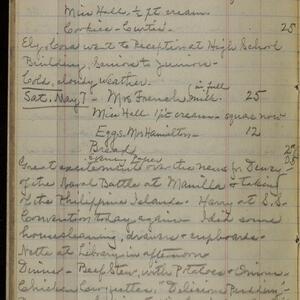 Miss Hall ½ pt cream.
Cookies - Curtis' 25
Ely, Cora went to Reception at High School
Building, Seniors to Juniors.
Cold, cloudy weather.
Sat. May 7 - Mrs French milk in full 25
Miss Hall ½ pt cream - square now
Eggs. Mrs Hamilton 12
Bread
Evening Paper 05
Great excitement over the news for Dewey
of the Naval Battle at Manilla & taking
of the Philippine Islands. Harry at S.S.
Convention today again. I did some
housecleaning, drawers & cupboards.
Nette at Library in afternoon
Dinner - Beef Stew, with Potatoes & Onions
Chicken "Delicious Pudding"